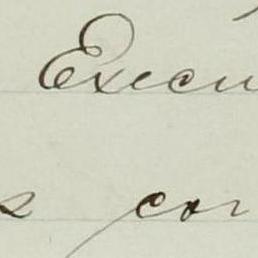 Execu
s cor